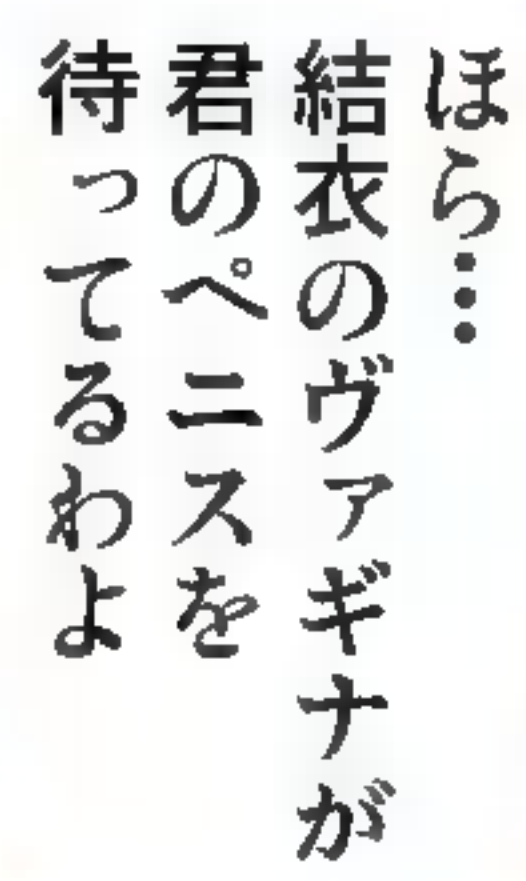 ほら…
結衣のヴァギナが
君のペニスを
待ってるわよ